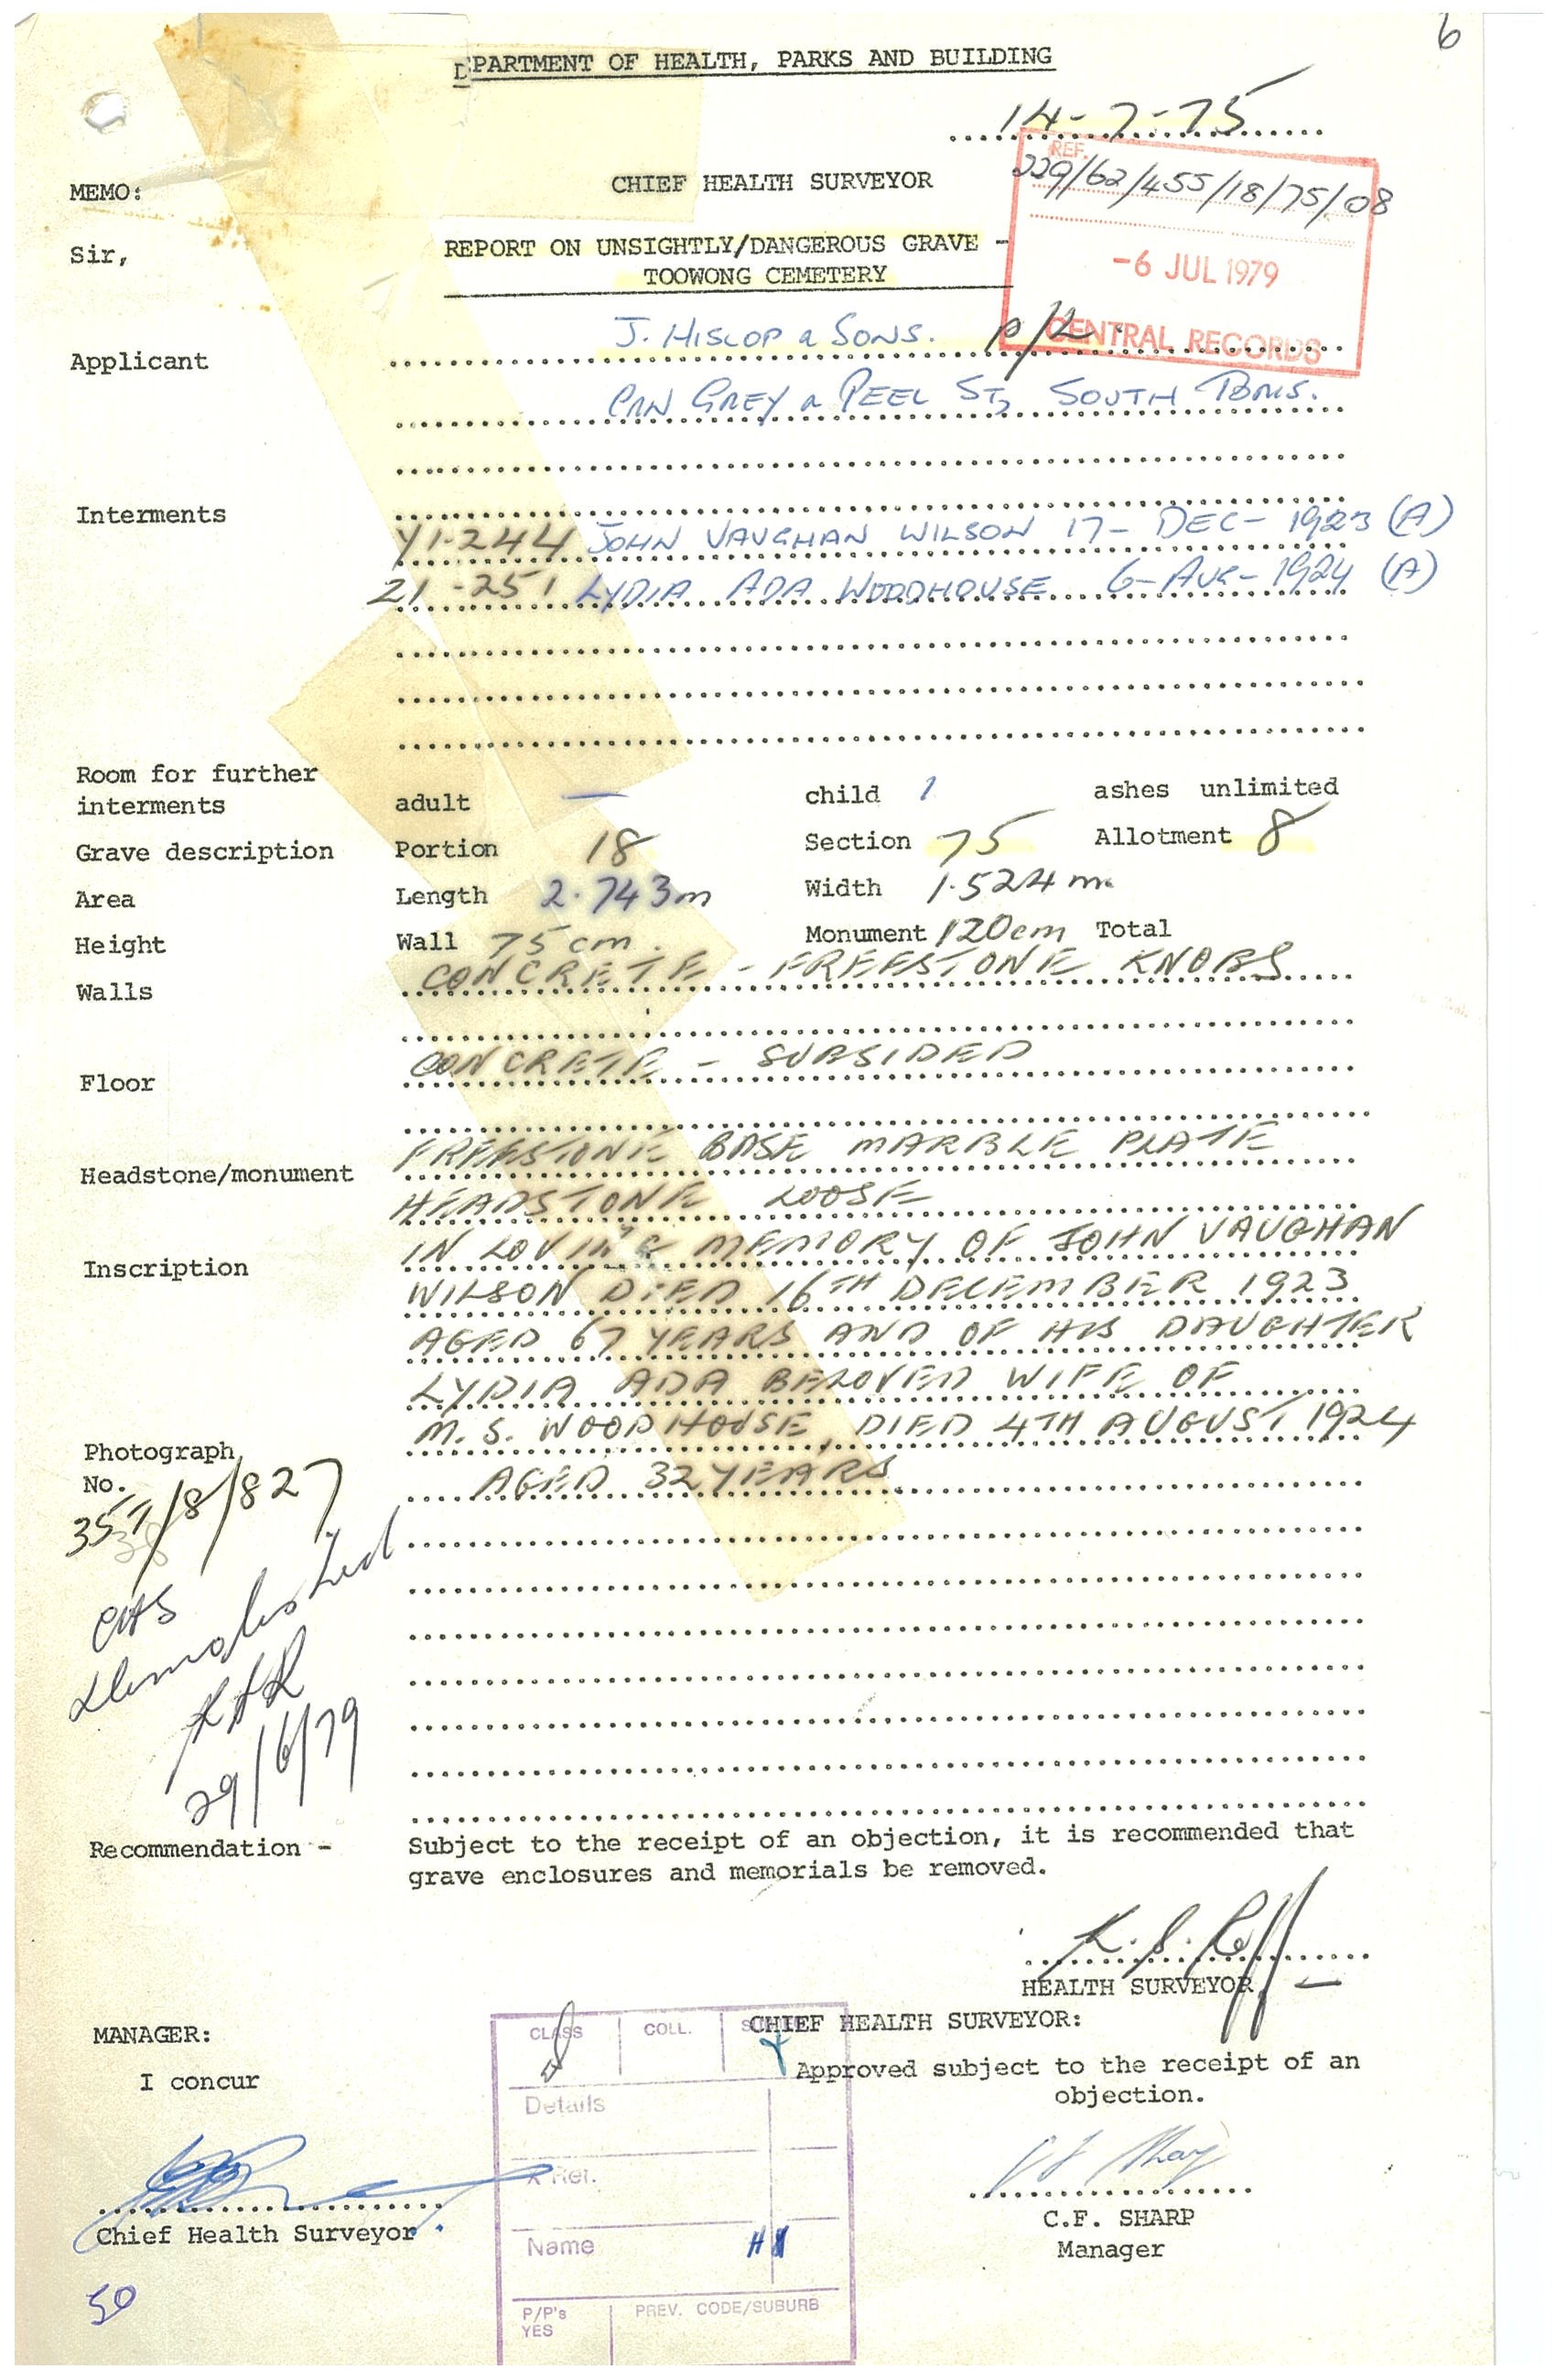 6
DEPARTMENT OF HEALTH, PARKS AND BUILDING
14-7-75
REF.
229/62/455/18/75/08
MEMO:
CHIEF HEALTH SURVEYOR
Sir,
REPORT ON UNSIGHTLY/DANGEROUS GRAVE -
TOOWONG CEMETERY
-6 JUL 1979
CENTRAL RECORDS
Applicant J. HISLOP & SONS. P/L.
CRN GREY & PEEL ST, SOUTH BRIS.
Interments
Y1-244 JOHN VAUGHAN WILSON 17- DEC- 1923 (A)
21-251 LYDIA ADA WOODHOUSE 6-AUG-1924 (A)
Room for further
interments adult — child 1 ashes unlimited
Grave description Portion 18 Section 75 Allotment 8
Area Length 2.743m Width 1.524m
Height Wall 75cm. Monument 120cm Total
Walls CONCRETE - FREESTONE KNOBS
Floor CONCRETE - SUBSIDED
Headstone/monument FREESTONE BASE MARBLE PLATE
HEADSTONE LOOSE
Inscription IN LOVING MEMORY OF JOHN VAUGHAN
WILSON DIED 16TH DECEMBER 1923
AGED 67 YEARS AND OF HIS DAUGHTER
LYDIA ADA BELOVED WIFE OF
M.S. WOODHOUSE, DIED 4TH AUGUST 1924
AGED 32 YEARS
Photograph
No.
357/8/827
Demolished
29/6/79
Recommendation - Subject to the receipt of an objection, it is recommended that
grave enclosures and memorials be removed.
HEALTH SURVEYOR
MANAGER:
CHIEF HEALTH SURVEYOR:
I concur
Approved subject to the receipt of an
objection.
Chief Health Surveyor
C.F. SHARP
Manager
CLASS COLL.
Details
X Ref.
Name
P/P's
YES
PREV. CODE/SUBURB
50